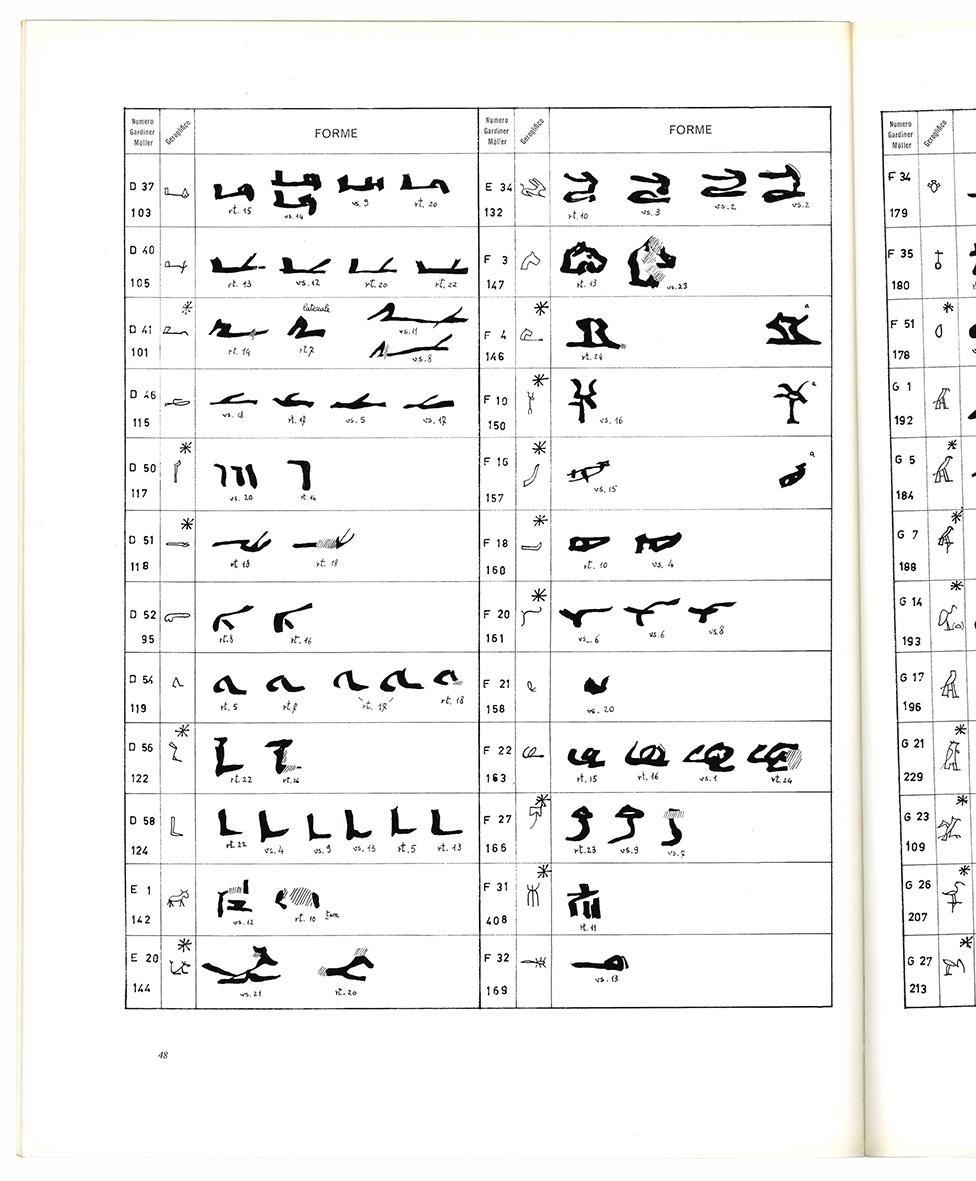 Numero Gardiner Möller
Geroglifico
FORME
D 37
103
rt. 15
vs. 14
vs. 9
rt. 20
D 40
105
rt. 13
vs. 12
rt. 20
rt. 22
D 41
101
rt. 14
laterale
rt. 7
vs. 11
vs. 8
D 46
115
vs. 13
rt. 17
vs. 5
vs. 17
D 50
117
vs. 20
rt. 14
D 51
118
rt 18
rt. 18
D 52
95
rt. 8
rt. 16
D 54
119
rt. 5
rt. 18
D 56
122
rt. 22
D 58
124
rt. 22
vs. 4
vs. 9
vs. 13
rt. 5
rt. 13
E 1
142
vs. 12
rt. 10
E 20
144
vs. 21
rt. 20
Numero Gardiner Möller
Geroglifico
FORME
E 34
132
rt. 10
vs. 3
vs. 2
vs. 2
F 3
147
rt. 13
vs. 23
F 4
146
rt. 24
a
F 19
150
vs. 16
a
F 16
157
vs. 15
a
F 18
160
rt. 10
vs. 4
F 20
161
vs. 6
vs. 6
vs. 8
F 21
158
vs. 20
F 22
163
rt. 15
rt. 16
vs. 1
rt. 24
F 27
166
rt. 23
vs. 9
F 31
408
rt. 11
F 32
169
vs. 13
48
Numero Gardiner Möller
Geroglifico
F 34
179
F 35
180
F 51
178
G 1
192
G 5
184
G 7
188
G 14
193
G 17
196
G 21
229
G 23
109
G 26
207
G 27
213